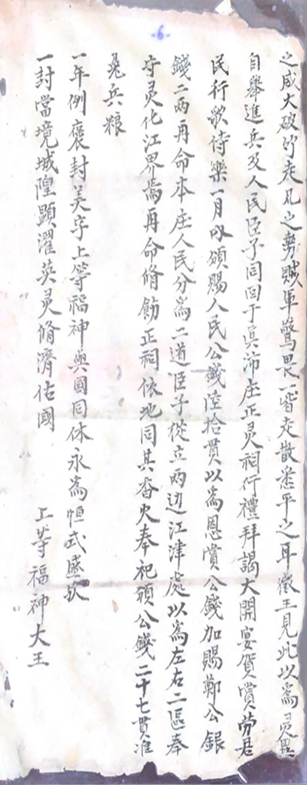 -6-
之威大破竹走瓦之勢賊軍驚畏一皆走散悉平之耳徵王見此以為灵異
自舉進兵及人民臣子同回于真沛庄正灵祠行禮拜謁大開宴賀賞勞君
民行歌侍樂一月以頒賜人民公錢陸拾貫以為恩賞公錢加賜鄭公銀
錢二两再命本庄人民分為二道臣子從立两边江津處以為左右二區奉
守灵化江界為再命脩飭正祠依地同其香火奉祀頒公錢二十七貫准
免兵粮
一年例褒封美字上等福神與國同休永為恒式盛哉
一封當境城隍顯濯英灵脩濟佑國 上等福神大王